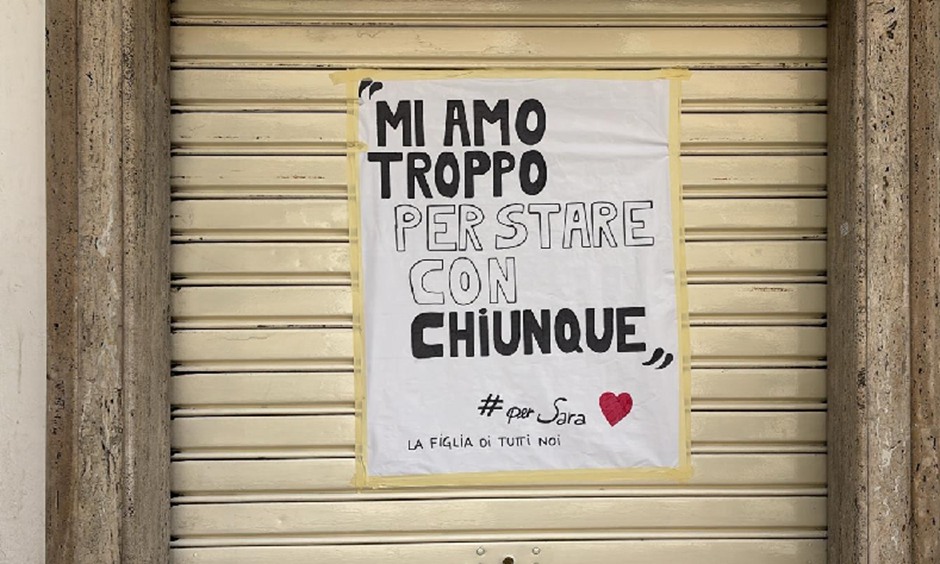 "MI AMO
TROPPO
PER STARE
CON
CHIUNQUE„
# per Sara
LA FIGLIA DI TUTTI NOI